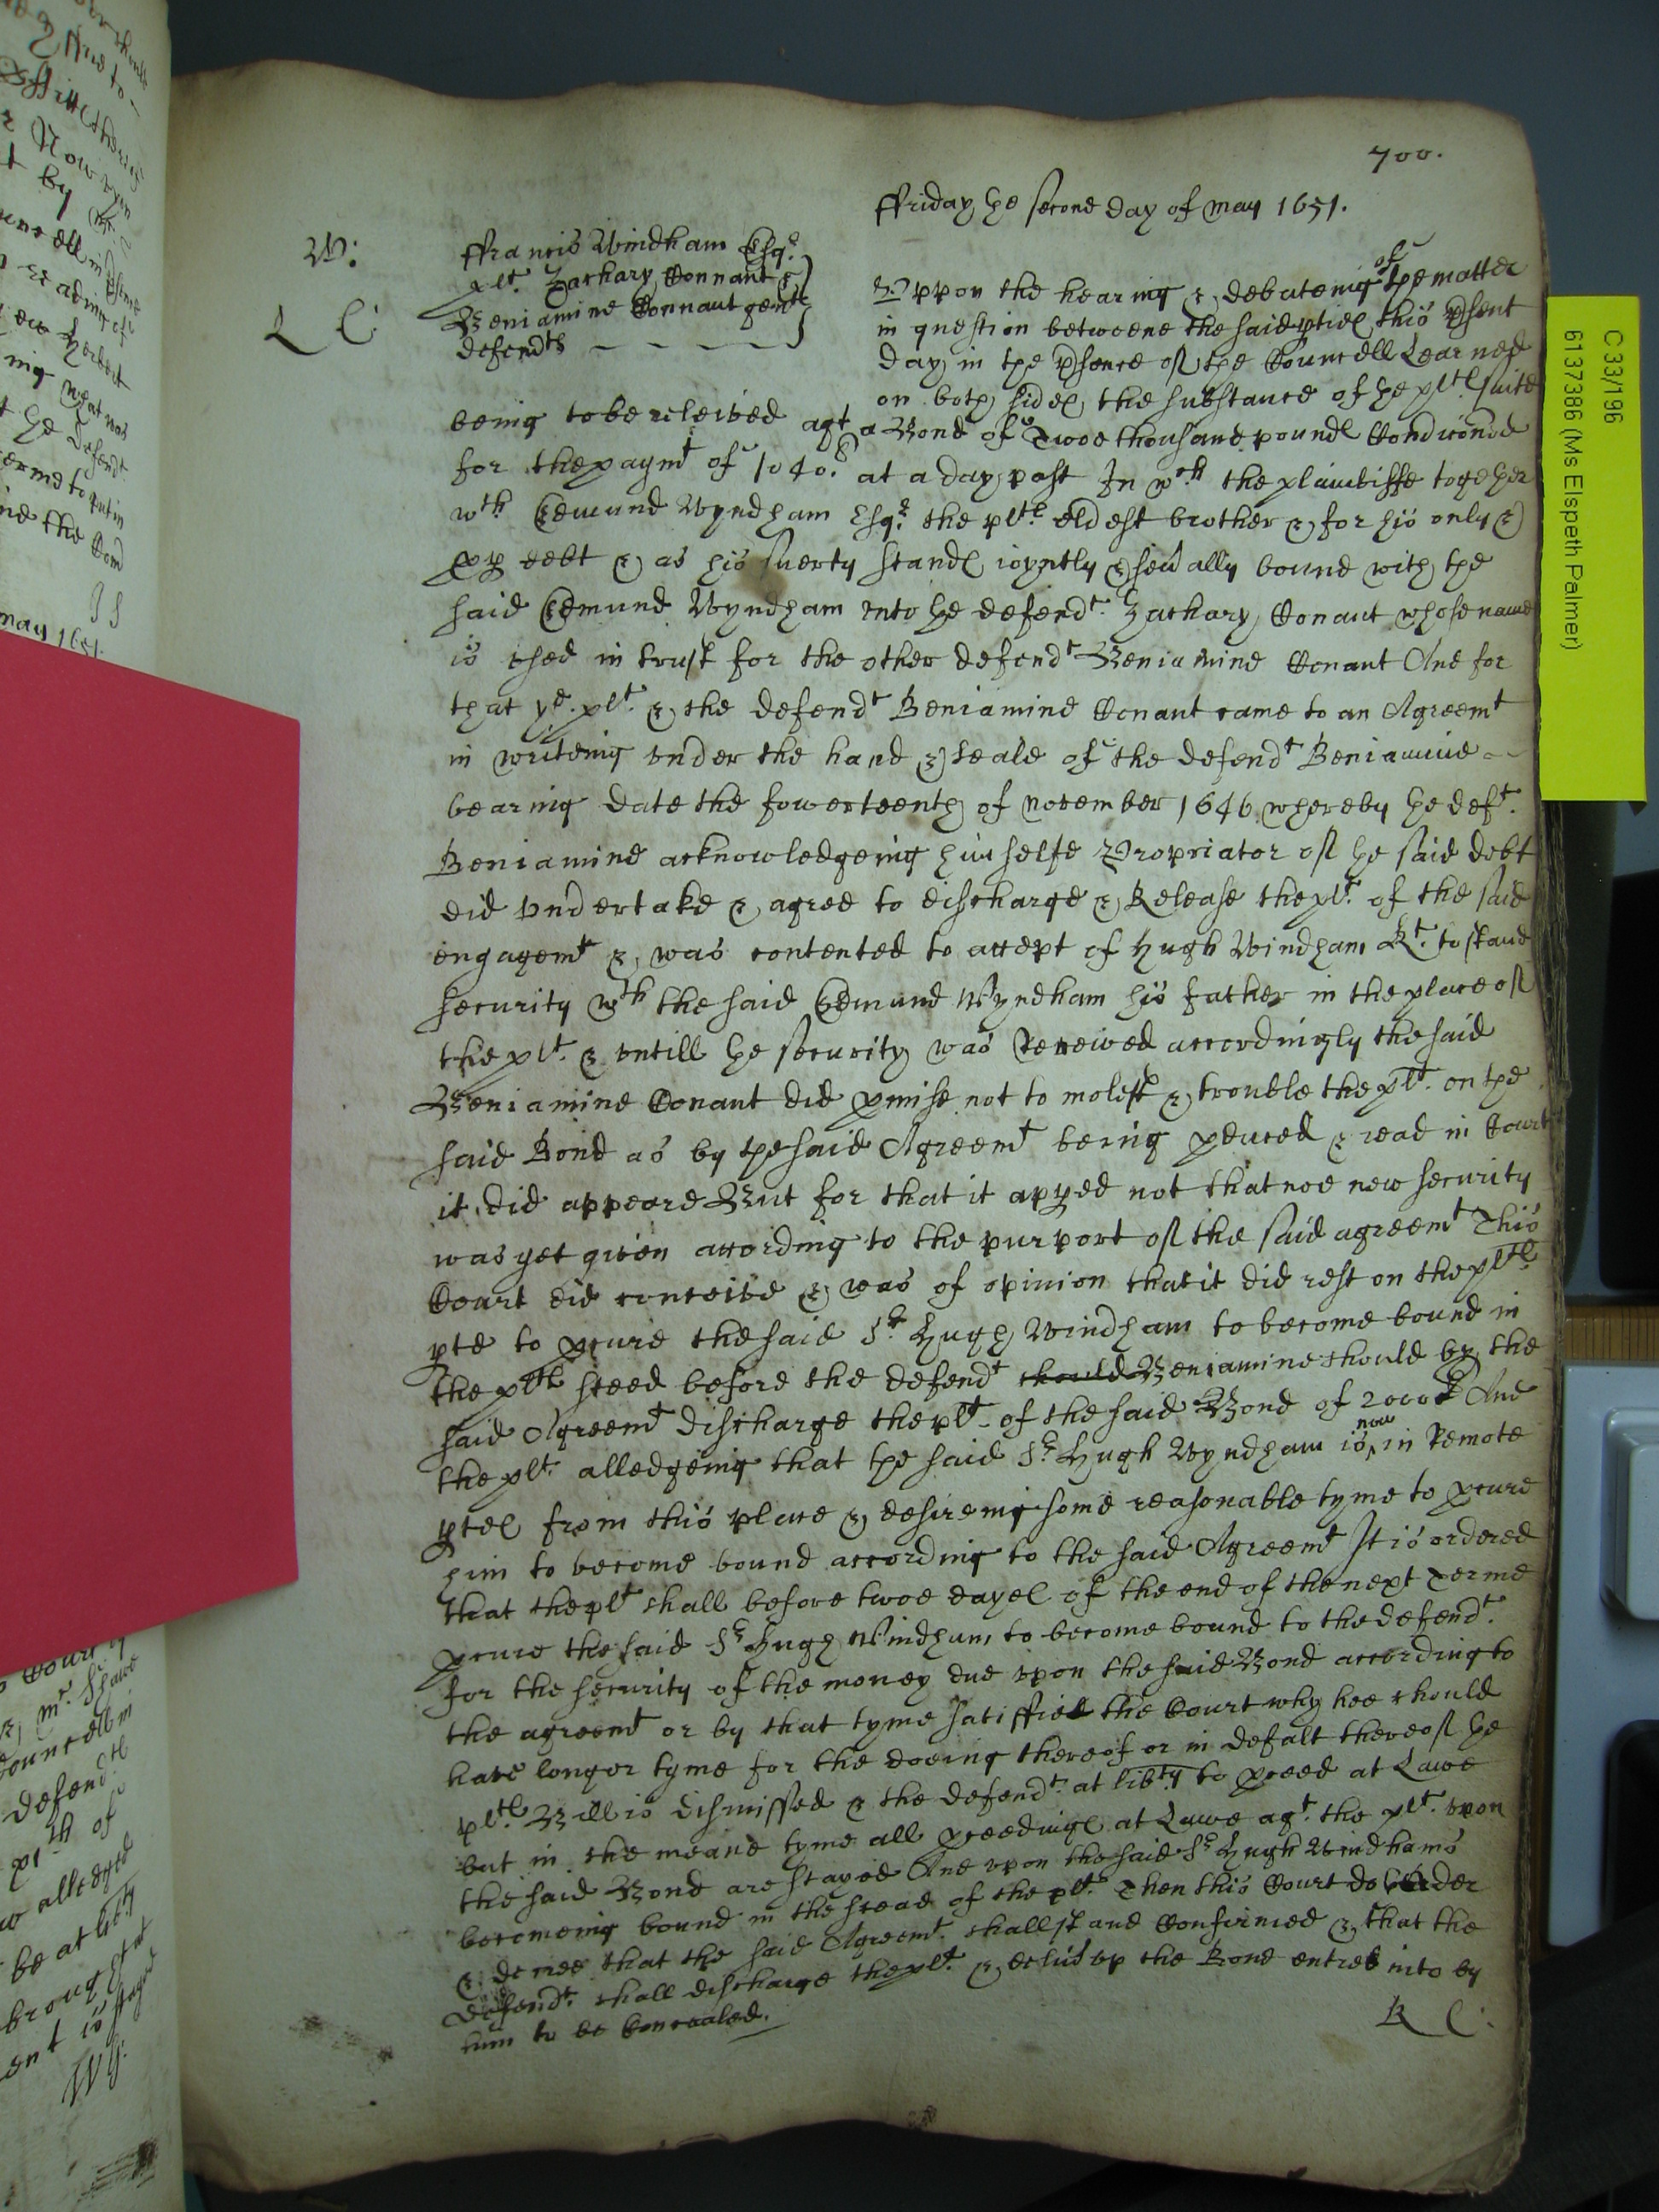 700.
ffriday the second day of may 1651.
W:
L C:
ffrancis Windham Esqr
plt. Zachary Connant &
Beniamine Connant gentl
defendts
Vppon the hearing & debateing of the matter
in question betweene the said pties this psent
day in the psence of the Councell Learned
on both sides the substance of the plts suite
being to be releived agt a Bond of Twoe thousand pounds Condiconed
for the paymt of 1040l at a day past In wch the plaintiffe together
wth Edmund Wyndham Esqr. the plts eldest brother & for his only &
pp debt & as his suerty stands ioyntly & seually bound with the
said Edmund Wyndham vnto the defendt. Zachary Conant whose name
is vsed in trust for the other defendt Beniamine Conant And for
that ye. plt. & the defendt Beniamine Conant came to an Agreemt
in writeing vnder the hand & seale of the defendt Beniamine
bearing date the fowerteenth of november 1646 whereby the deft.
Beniamine acknowledgeing himselfe Propriator of the said debt
did vndertake & agree to discharge & Release the plt. of the said
engagemt & was contented to accept of Hugh Windham Kt. to stand
security wth the said Edmund Wyndham his father in the place of
the plt. & vntill the security was Renewed accordingly the said
Beniamine Conant did pmise not to molest & trouble the plt. on the
said Bond as by the said Agreemt being pduced & read in Court
it did appeare But for that it apped not that noe new security
was yet given according to the purport of the said agreemt This
Court did conceive & was of opinion that it did rest on the plts
pte to pcure the said Sr Hugh Windham to become bound in
the plts steed before the defendt should Beniamine should by the
said Agreemt discharge the plt. of the said Bond of 2000l And
the plt. alledgeing that the said Sr. Hugh Wyndham is now in Remote
ptes from this place & desireing some reasonable tyme to pcure
him to become bound according to the said Agreemt It is ordered
that the plt shall before twoe dayes of the end of the next Terme
pcure the said Sr Hugh Windham to become bound to the defendt.
for the security of the money due vpon the said Bond according to
the agreemt or by that tyme satisffie the Court why hee should
have longer tyme for the doeing thereof or in defalt thereof the
plts. Bill is dismissed & the defendt. at libty to pceed at Lawe
but in the meane tyme all pceedings at Lawe agt. the plt. vpon
the said Bond are stayed And vpon the said Sr Hugh Windhams
becomeing bound in the stead of the plt. Then this Court do order
& decree that the said Agreemt. shall stand Confirmed & that the
defendt. shall discharge the plt. & deliu vp the Bond entred into by
him to be Concealed.
R C:
C 33/196
6137386 (Ms Elspeth Palmer)